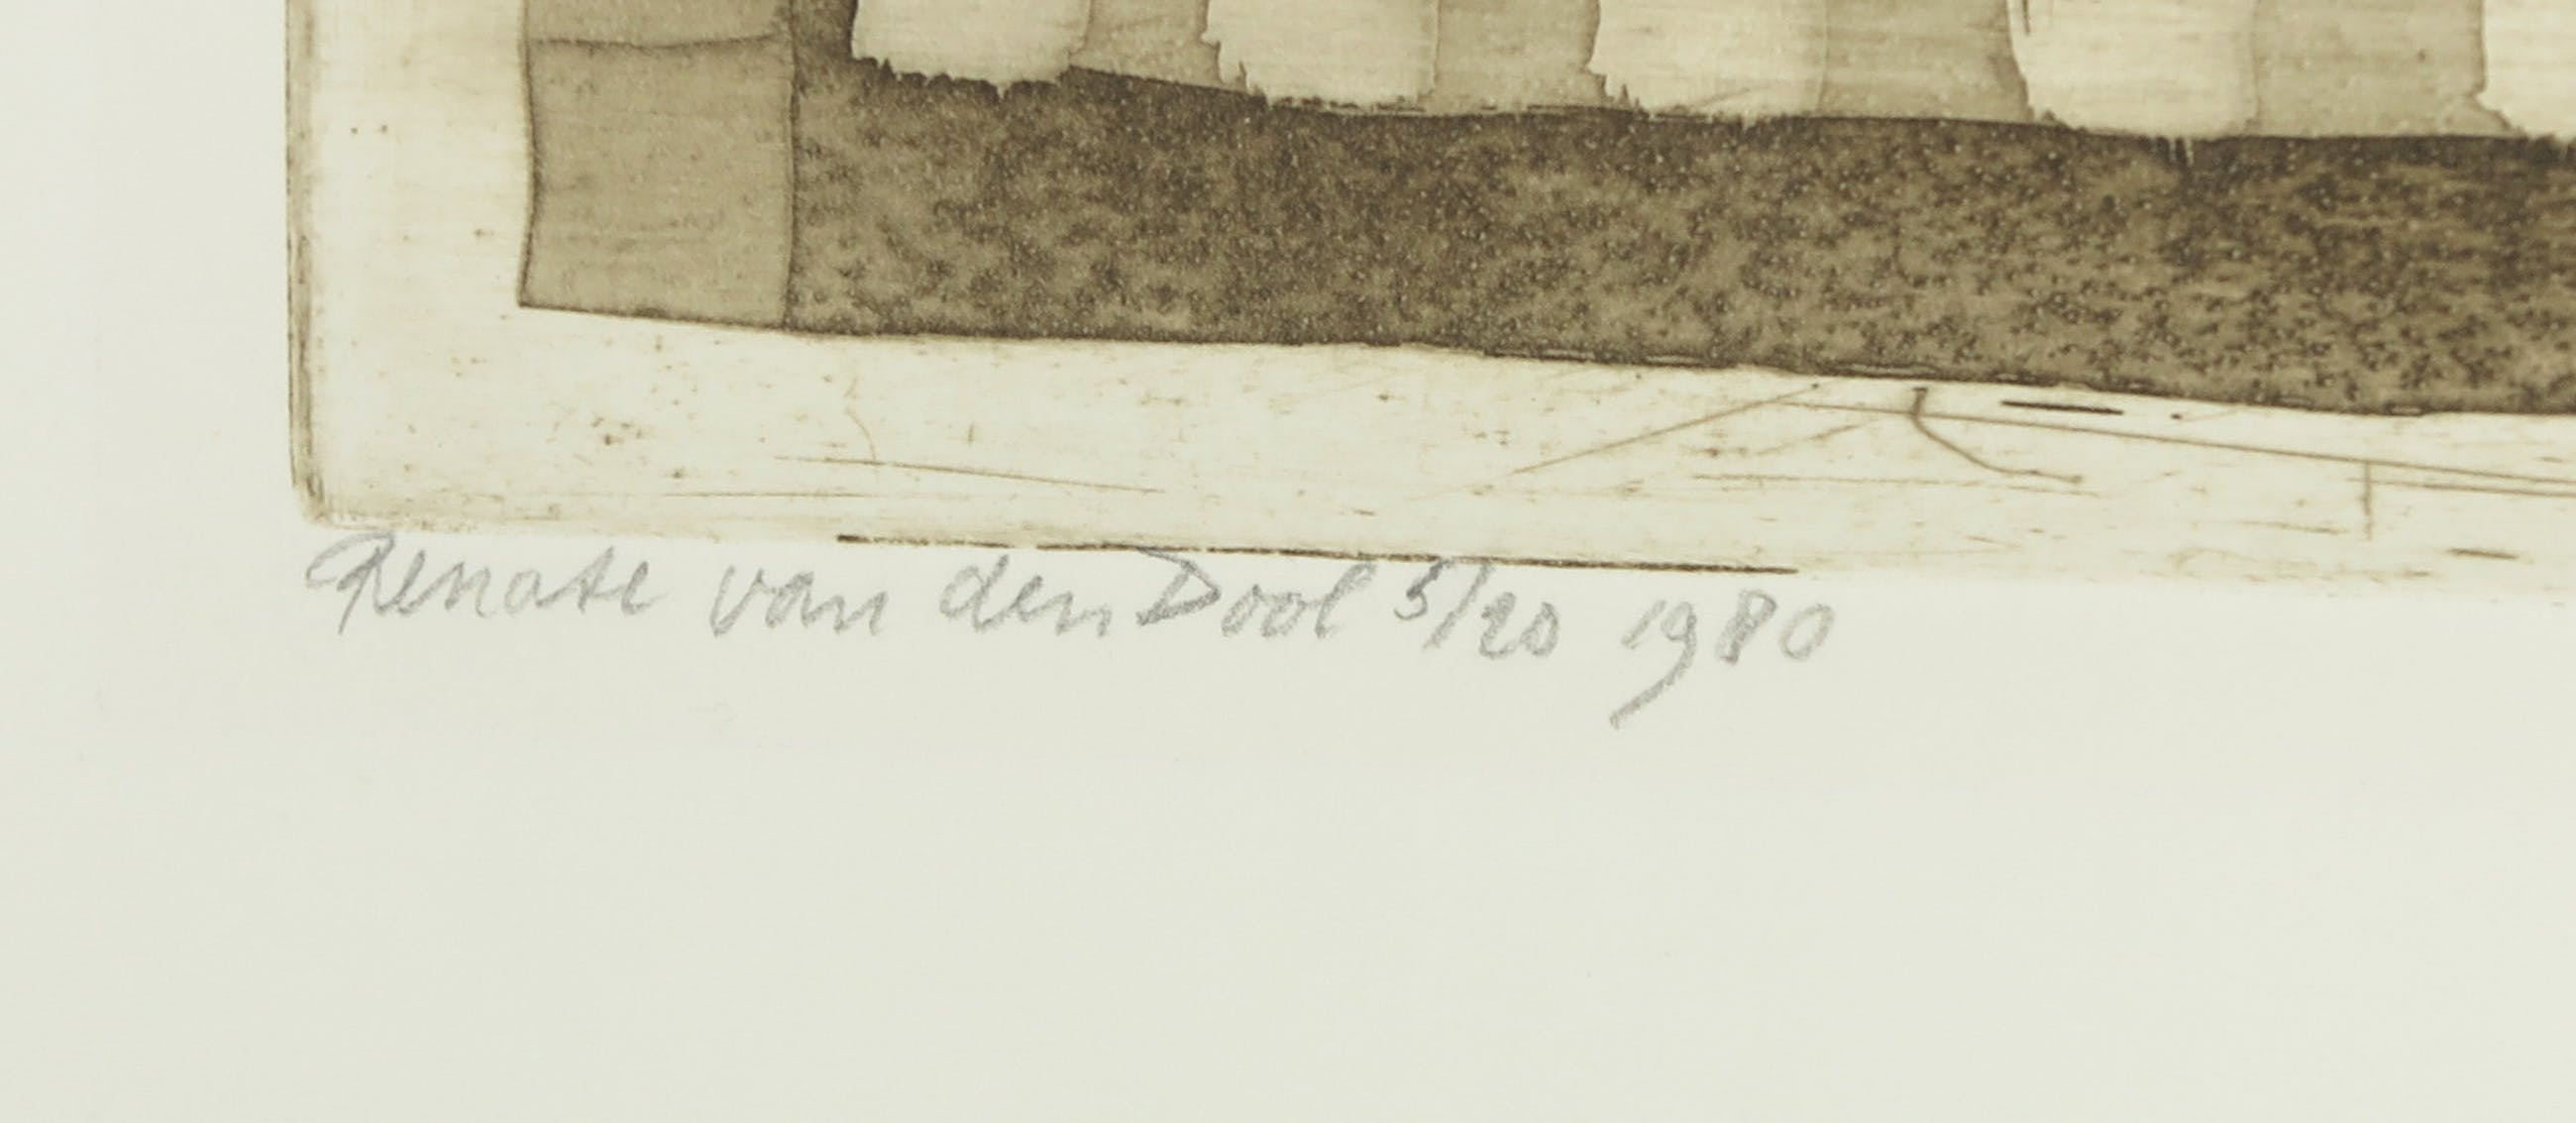 Renate van den Dool 5/20 1980